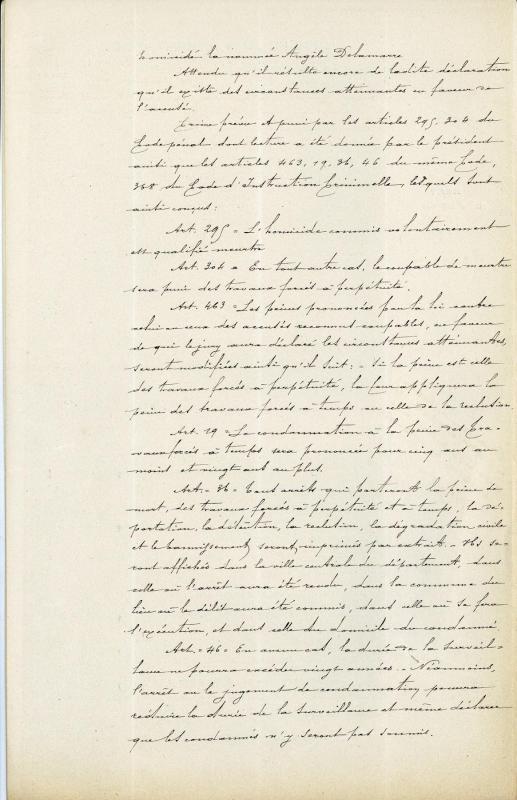 homicidé la nommée Angèle Delamarre
Attendu qu'il résulte encore de ladite déclaration
qu'il existe des circonstances atténuantes en faveur de
l'accusé.
Crime prévu & puni par les articles 295, 304 du
Code pénal dont lecture a été donnée par le président
ainsi que les articles 463, 19, 36, 46 du même Code,
368 du Code d'Instruction Criminelle, lesquels sont
ainsi conçus:
Art. 295 = L'homicide commis volontairement
est qualifié meurtre
Art. 304 = En tout autre cas, le coupable de meurtre
sera puni des travaux forcés à perpétuité.
Art. 463 = Les peines prononcées par la loi contre
celui ou ceux des accusés reconnus coupables, en faveur
de qui le jury aura déclaré les circonstances atténuantes,
seront modifiées ainsi qu'il suit: = Si la peine est celle
des travaux forcés à perpétuité, la Cour appliquera la
peine des travaux forcés à temps ou celle de la reclusion.
Art. 19 = La condamnation à la peine des tra-
vaux forcés à temps sera prononcée pour cinq ans au
moins et vingt ans au plus.
Art = 36 = Tous arrêts qui porteront la peine de
mort, des travaux forcés à perpétuité et à temps, la dé-
portation, la détention, la reclusion, la dégradation civile
et le bannissement, seront imprimés par extrait. = Ils se-
ront affichés dans la ville centrale du département, dans
celle où l'arrêt aura été rendu, dans la commune du
lieu où le délit aura été commis, dans celle où se fera
l'exécution, et dans celle du domicile du condamné
Art. = 46 = En aucun cas, la durée de la surveil-
lance ne pourra excéder vingt années. = Néanmoins,
l'arrêt ou le jugement de condamnation pourra
réduire la durée de la surveillance et même déclarer
que les condamnés n'y seront pas soumis.